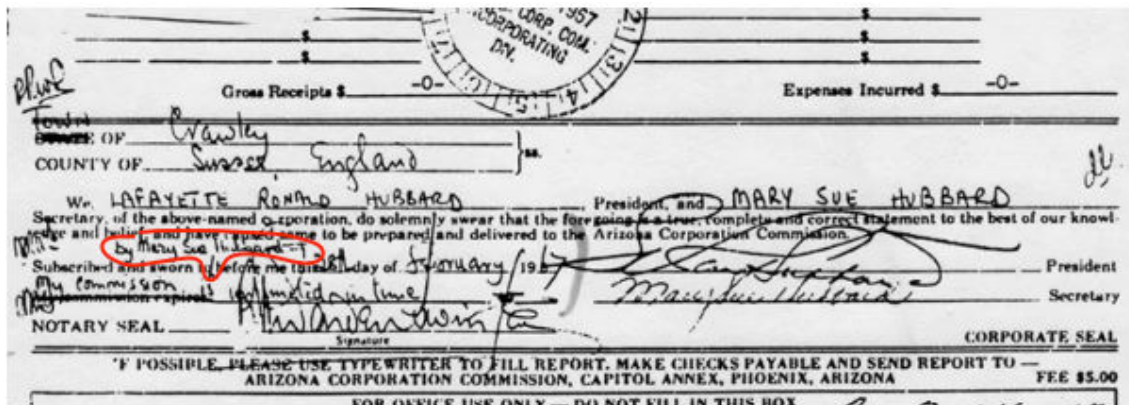 1957
CORP. COM.
INCORPORATING
DIV.
$ $
$ $
$ $
Gross Receipts $ -0- Expenses Incurred $ -0-
TOWN
STATE OF Crawley
COUNTY OF Sussex, England } ss.
We, LAFAYETTE RONALD HUBBARD President, and MARY SUE HUBBARD
Secretary, of the above-named corporation, do solemnly swear that the foregoing is a true, complete and correct statement to the best of our knowl-
edge and belief and have caused same to be prepared and delivered to the Arizona Corporation Commission.
by Mary Sue Hubbard
Subscribed and sworn to before me this day of February 19 President
My commission
My commission expires Mary Sue Hubbard Secretary
NOTARY SEAL
Signature
CORPORATE SEAL
'F POSSIBLE, PLEASE USE TYPEWRITER TO FILL REPORT. MAKE CHECKS PAYABLE AND SEND REPORT TO —
ARIZONA CORPORATION COMMISSION, CAPITOL ANNEX, PHOENIX, ARIZONA FEE $5.00
FOR OFFICE USE ONLY — DO NOT FILL IN THIS BOX